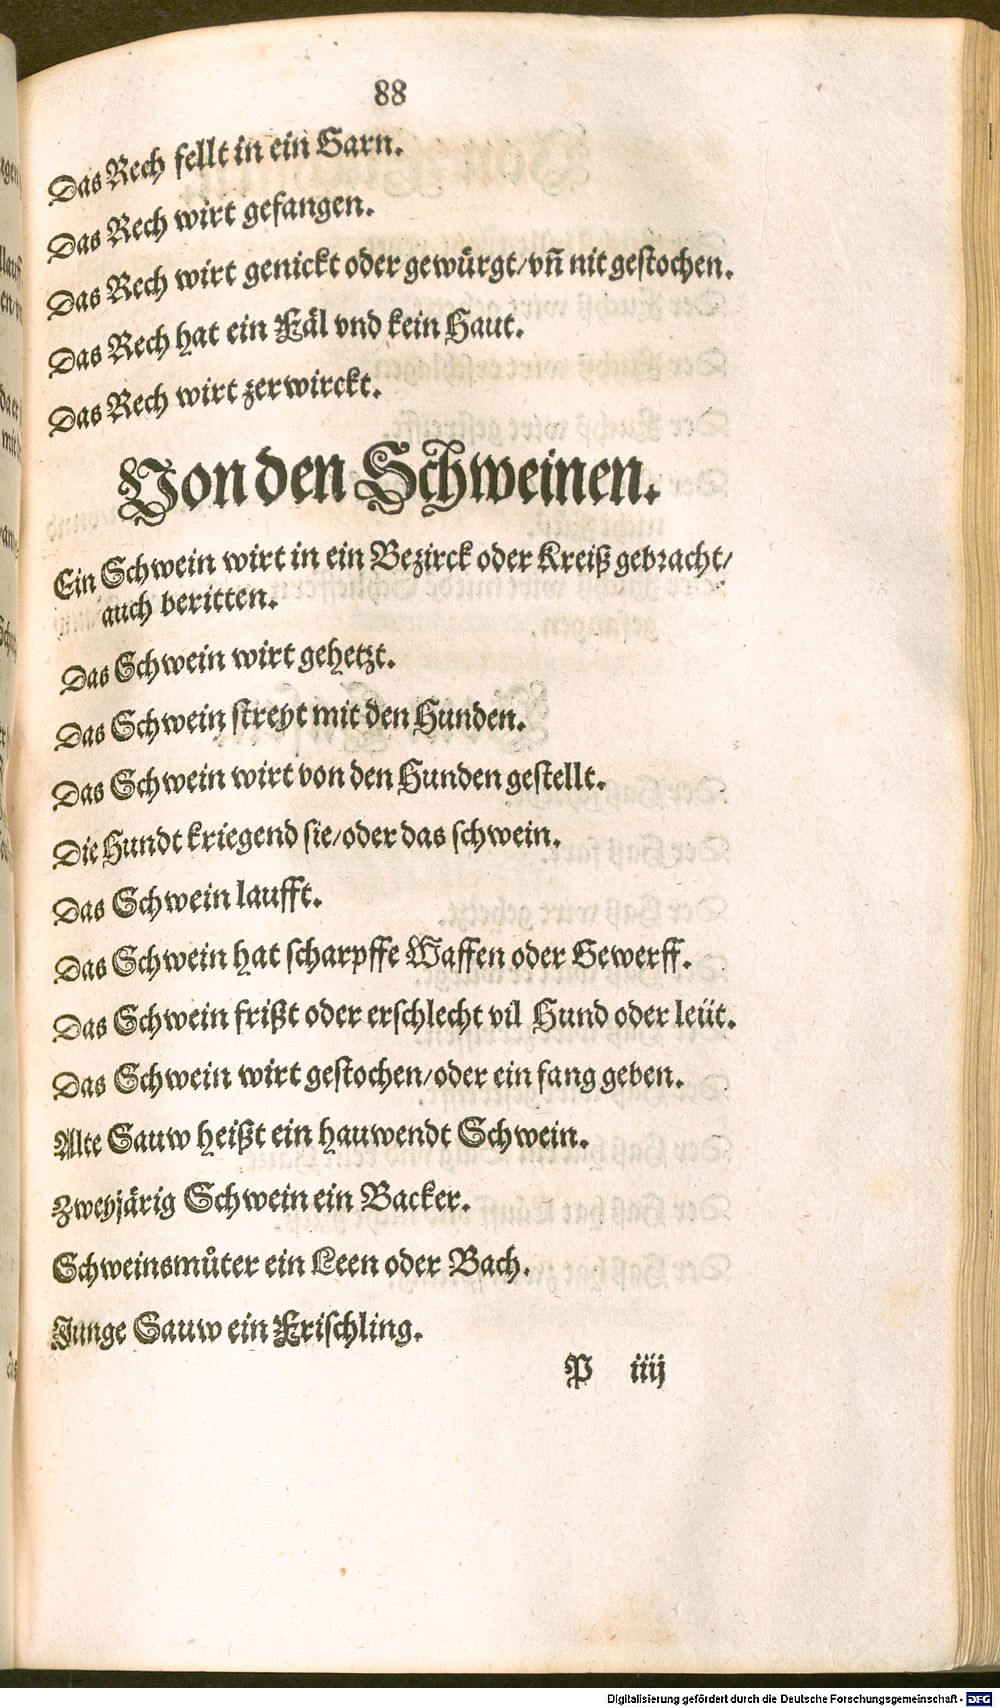 88
Das Rech fellt in ein Garn.
Das Rech wirt gefangen.
Das Rech wirt genickt oder gewürgt/vñ nit gestochen.
Das Rech hat ein Fäl vnd kein Haut.
Das Rech wirt zerwirckt.
Von den Schweinen.
Ein Schwein wirt in ein Bezirck oder Kreiß gebracht/
auch beritten.
Das Schwein wirt gehetzt.
Das Schwein streyt mit den Hunden.
Das Schwein wirt von den Hunden gestellt.
Die Hundt kriegend sie/oder das schwein.
Das Schwein laufft.
Das Schwein hat scharpffe Waffen oder Gewerff.
Das Schwein frißt oder erschlecht vil Hund oder leüt.
Das Schwein wirt gestochen/oder ein fang geben.
Alte Sauw heißt ein hauwendt Schwein.
Zweyjärig Schwein ein Backer.
Schweinsmůter ein Leen oder Bach.
Junge Sauw ein Frischling.
P iiij
Digitalisierung gefördert durch die Deutsche Forschungsgemeinschaft - DFG